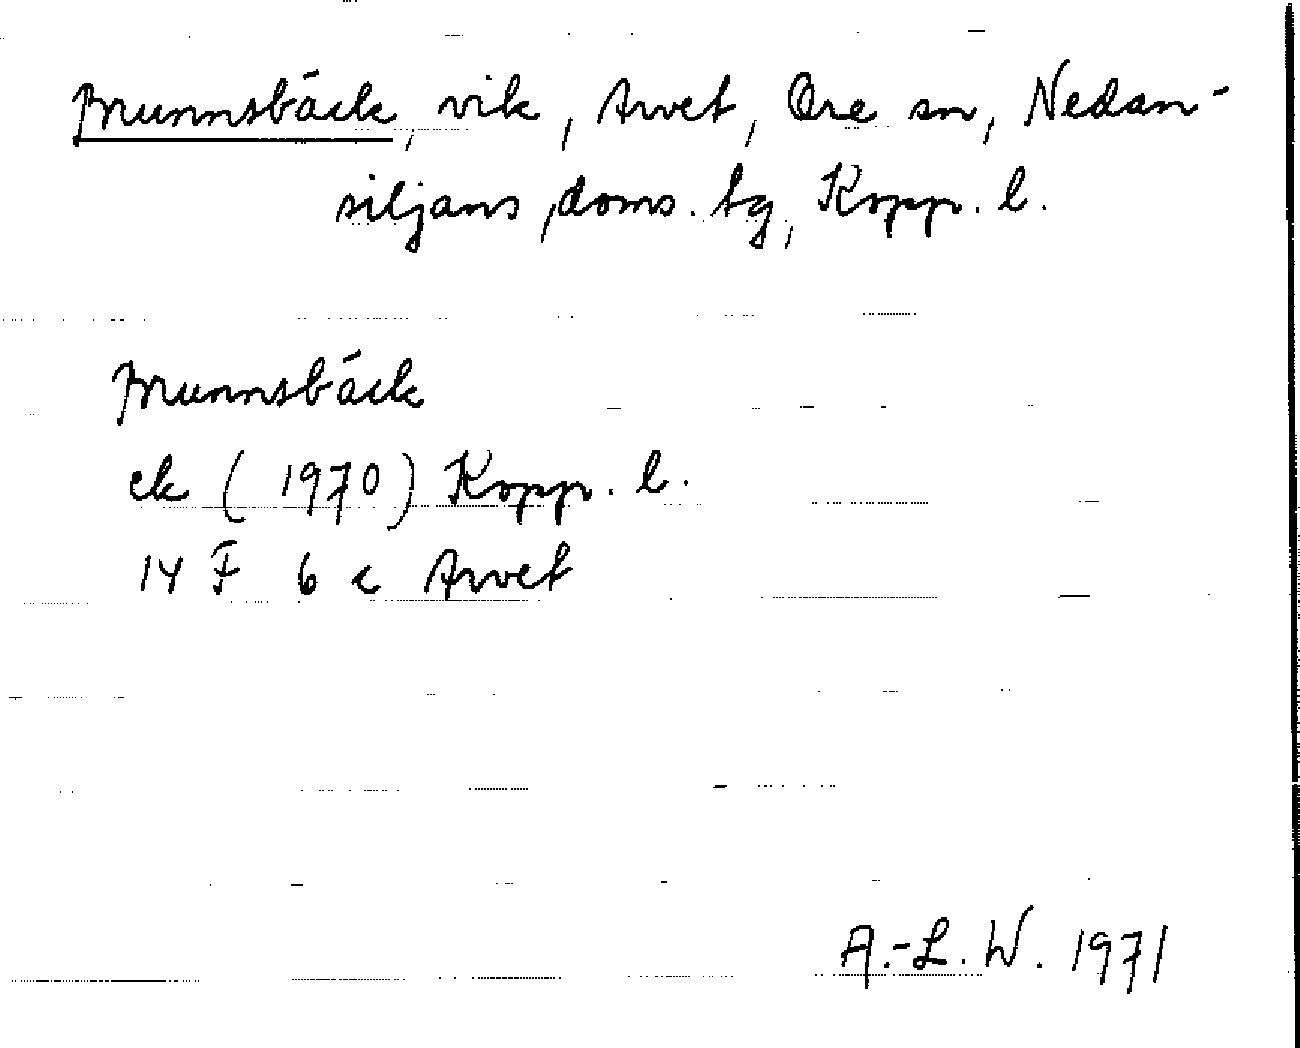 Brunnsbäck, vik, Arvet, Ore sn, Nedan-
siljans, doms. tg, Kopp. l.
Brunnsbäck
ek (1970) Kopp. l.
14 F 6 c Arvet
A.-L. W. 1971